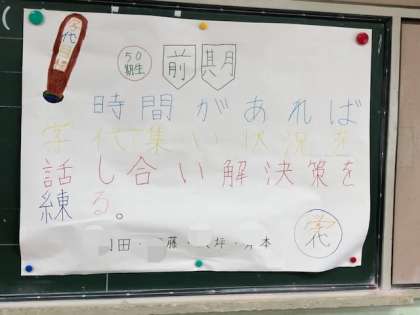 学代
50
期生
前期
時間があれば
学代集い状況を
話し合い解決策を
練る。
田・藤・坪・本
学代